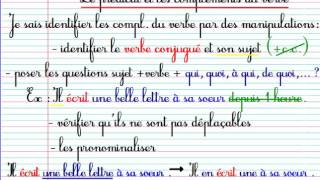 Le prédicat et les compléments du verbe
Je sais identifier les compl. du verbe par des manipulations:
- identifier le verbe conjugué et son sujet (+c.c.)
- poser les questions sujet +verbe + qui, quoi, à qui, de quoi,... ?
Ex : Il écrit une belle lettre à sa soeur depuis 1 heure.
- vérifier qu'ils ne sont pas déplaçables
- les pronominaliser
Il écrit une belle lettre à sa soeur. → Il en écrit une à sa soeur.